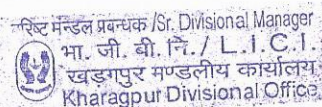 वरिष्ट मन्डल प्रबन्धक /Sr. Divisional Manager
भा. जी. बी. नि. / L.I.C.I.
खड़गपुर मण्डलीय कार्यालय
Kharagpur Divisional Office